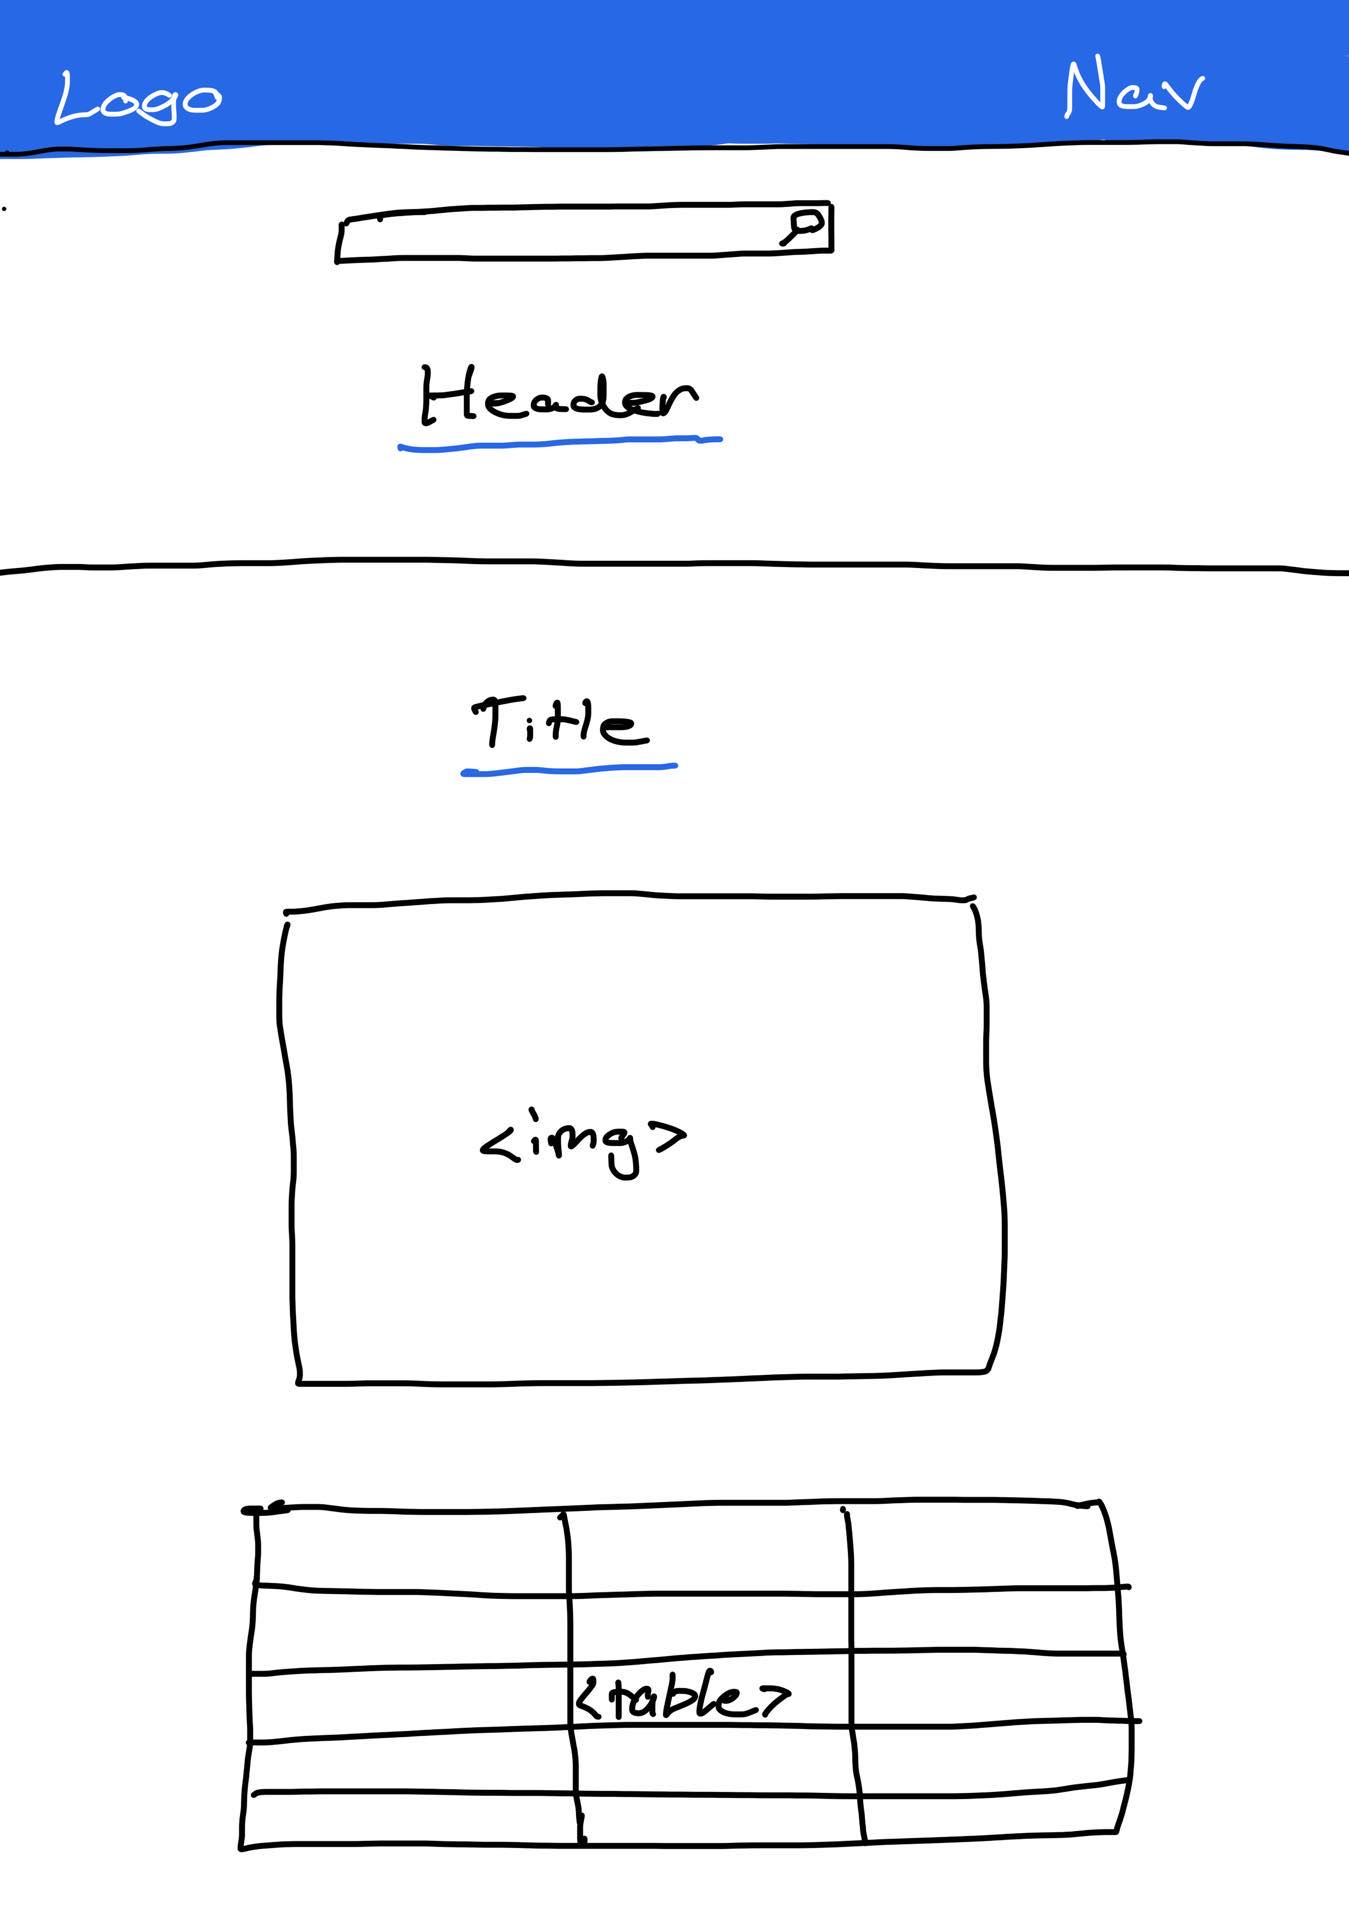 Logo Nav
Header
Title
<img>
<table>